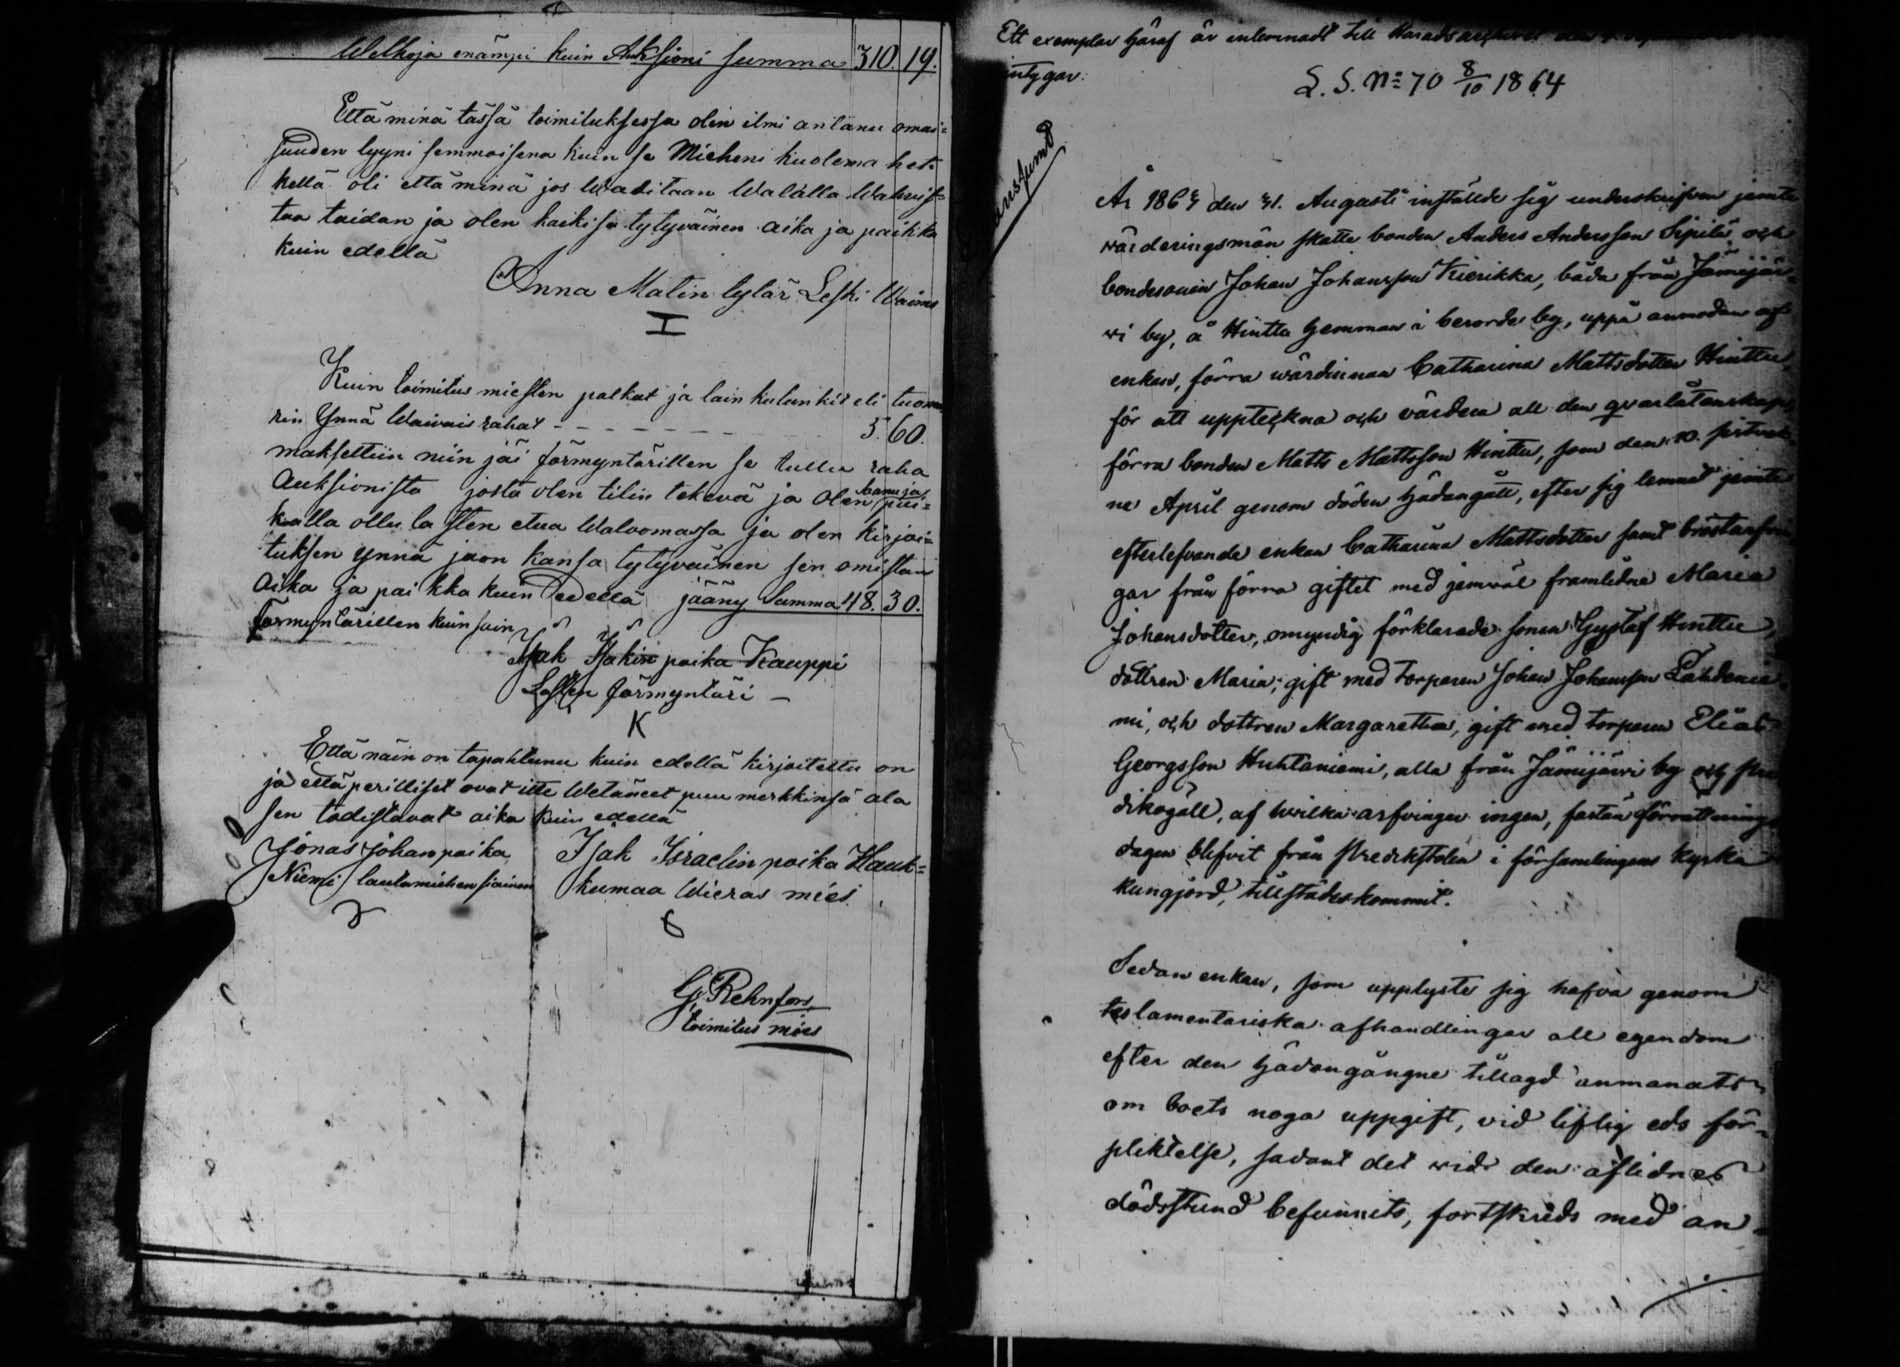 Welkoja enämpi kuin Auksioni summa 310. 19.
Että minä tässä toimituksessa olen ilmi antanu omai=
suuden lyyni semmoisena kuin se Mieheni kuolema het=
kellä oli että minä jos Waaditaan Walalla Wahwis=
taa taidan ja olen kaikisa tytyväinen aika ja paikka
kuin edellä
Anna Matin tytär Leski
I
Kuin toimitus miesten palkat ja lain kulunkit eli
rin Ynnä Waivais rahat - - - - - - 5. 60.
maksettiin niin jäi förmyntärillen se tullu raha
Auksionista josta olen tilin tekevä ja olen
kalla ollu lasten etua Walvomassa ja olen kirjoi=
tuksen ynnä jaon kansa tytyväinen sen omistan
Aika ja paikka kuin edellä jääny Summa 48. 30.
Förmyntärillen kuin sain
Isak Isakin poika Kauppi
Lasten förmyntäri -
K
Että näin on tapahtunu kuin edellä kirjoitettu on
ja että perilliset ovat itte Wetäneet puu merkkinsä ala
sen todistavat aika kuin edellä
Jonas Johan poika
Niemi lautamiehen siainen
Isak Israelin poika Hauk=
kumaa Wieras mies
G. Rehnfors
toimitus mies
Ett exemplar häraf är inlemnadt till
intygar.
L. S. No 70 8/10 1864
År 1864 den 31. Augusti instälde sig underskrifven jemte
värderingsmän skatte bonden Anders Andersson Sipilä och
bondesonen Johan Johansson Kierikka, båda från Jämijär=
vi by, å Hintta hemman i berorde by, uppå anmodan af
enkan, förra värdinnan Catharina Mattsdotter Hintta
för att uppteckna och värdera all den qvarlåtenskap
förra bonden Matts Mattsson Hintta, som den 10. sistvek
ne April genom döden hädangått, efter sig lemnat jemte
efterlefvande enkan Catharina Mattsdotter samt bröstarfvin
gar från förra giftet med jemväl framledne Maria
Johansdotter, omyndig förklarade sonen Gustaf Hintta,
dottren Maria, gift med torparen Johan Johansson Lahdenie
mi, och dottren Margaretha, gift med torparen Elias
Georgsson Huhtaniemi, alla från Jämijärvi by och
dikogäll, af hvilka arfvingar ingen, fastän förrättnings
dagen blifvit från predikstolen i församlingens kyrka
kungjord, tillstädeskommit.
Sedan enkan, som upplyste sig hafva genom
testamentariska afhandlingar all egendom
efter den hädangångne tillagd anmanats
om boets noga uppgift, vid liflig eds för=
pliktelse, sådant det vid den aflidnes
dödsstund befunnits, fortskreds med an=